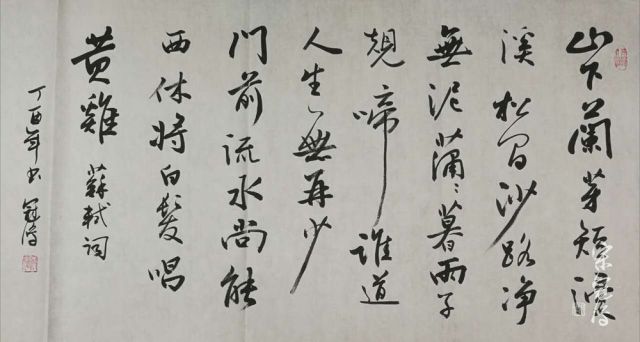 山下蘭芽短浸
溪松間沙路净
無泥瀟々暮雨子
規啼誰道
人生無再少
門前流水尚能
西休將白髮唱
黄雞 蘇軾詞
丁酉年書